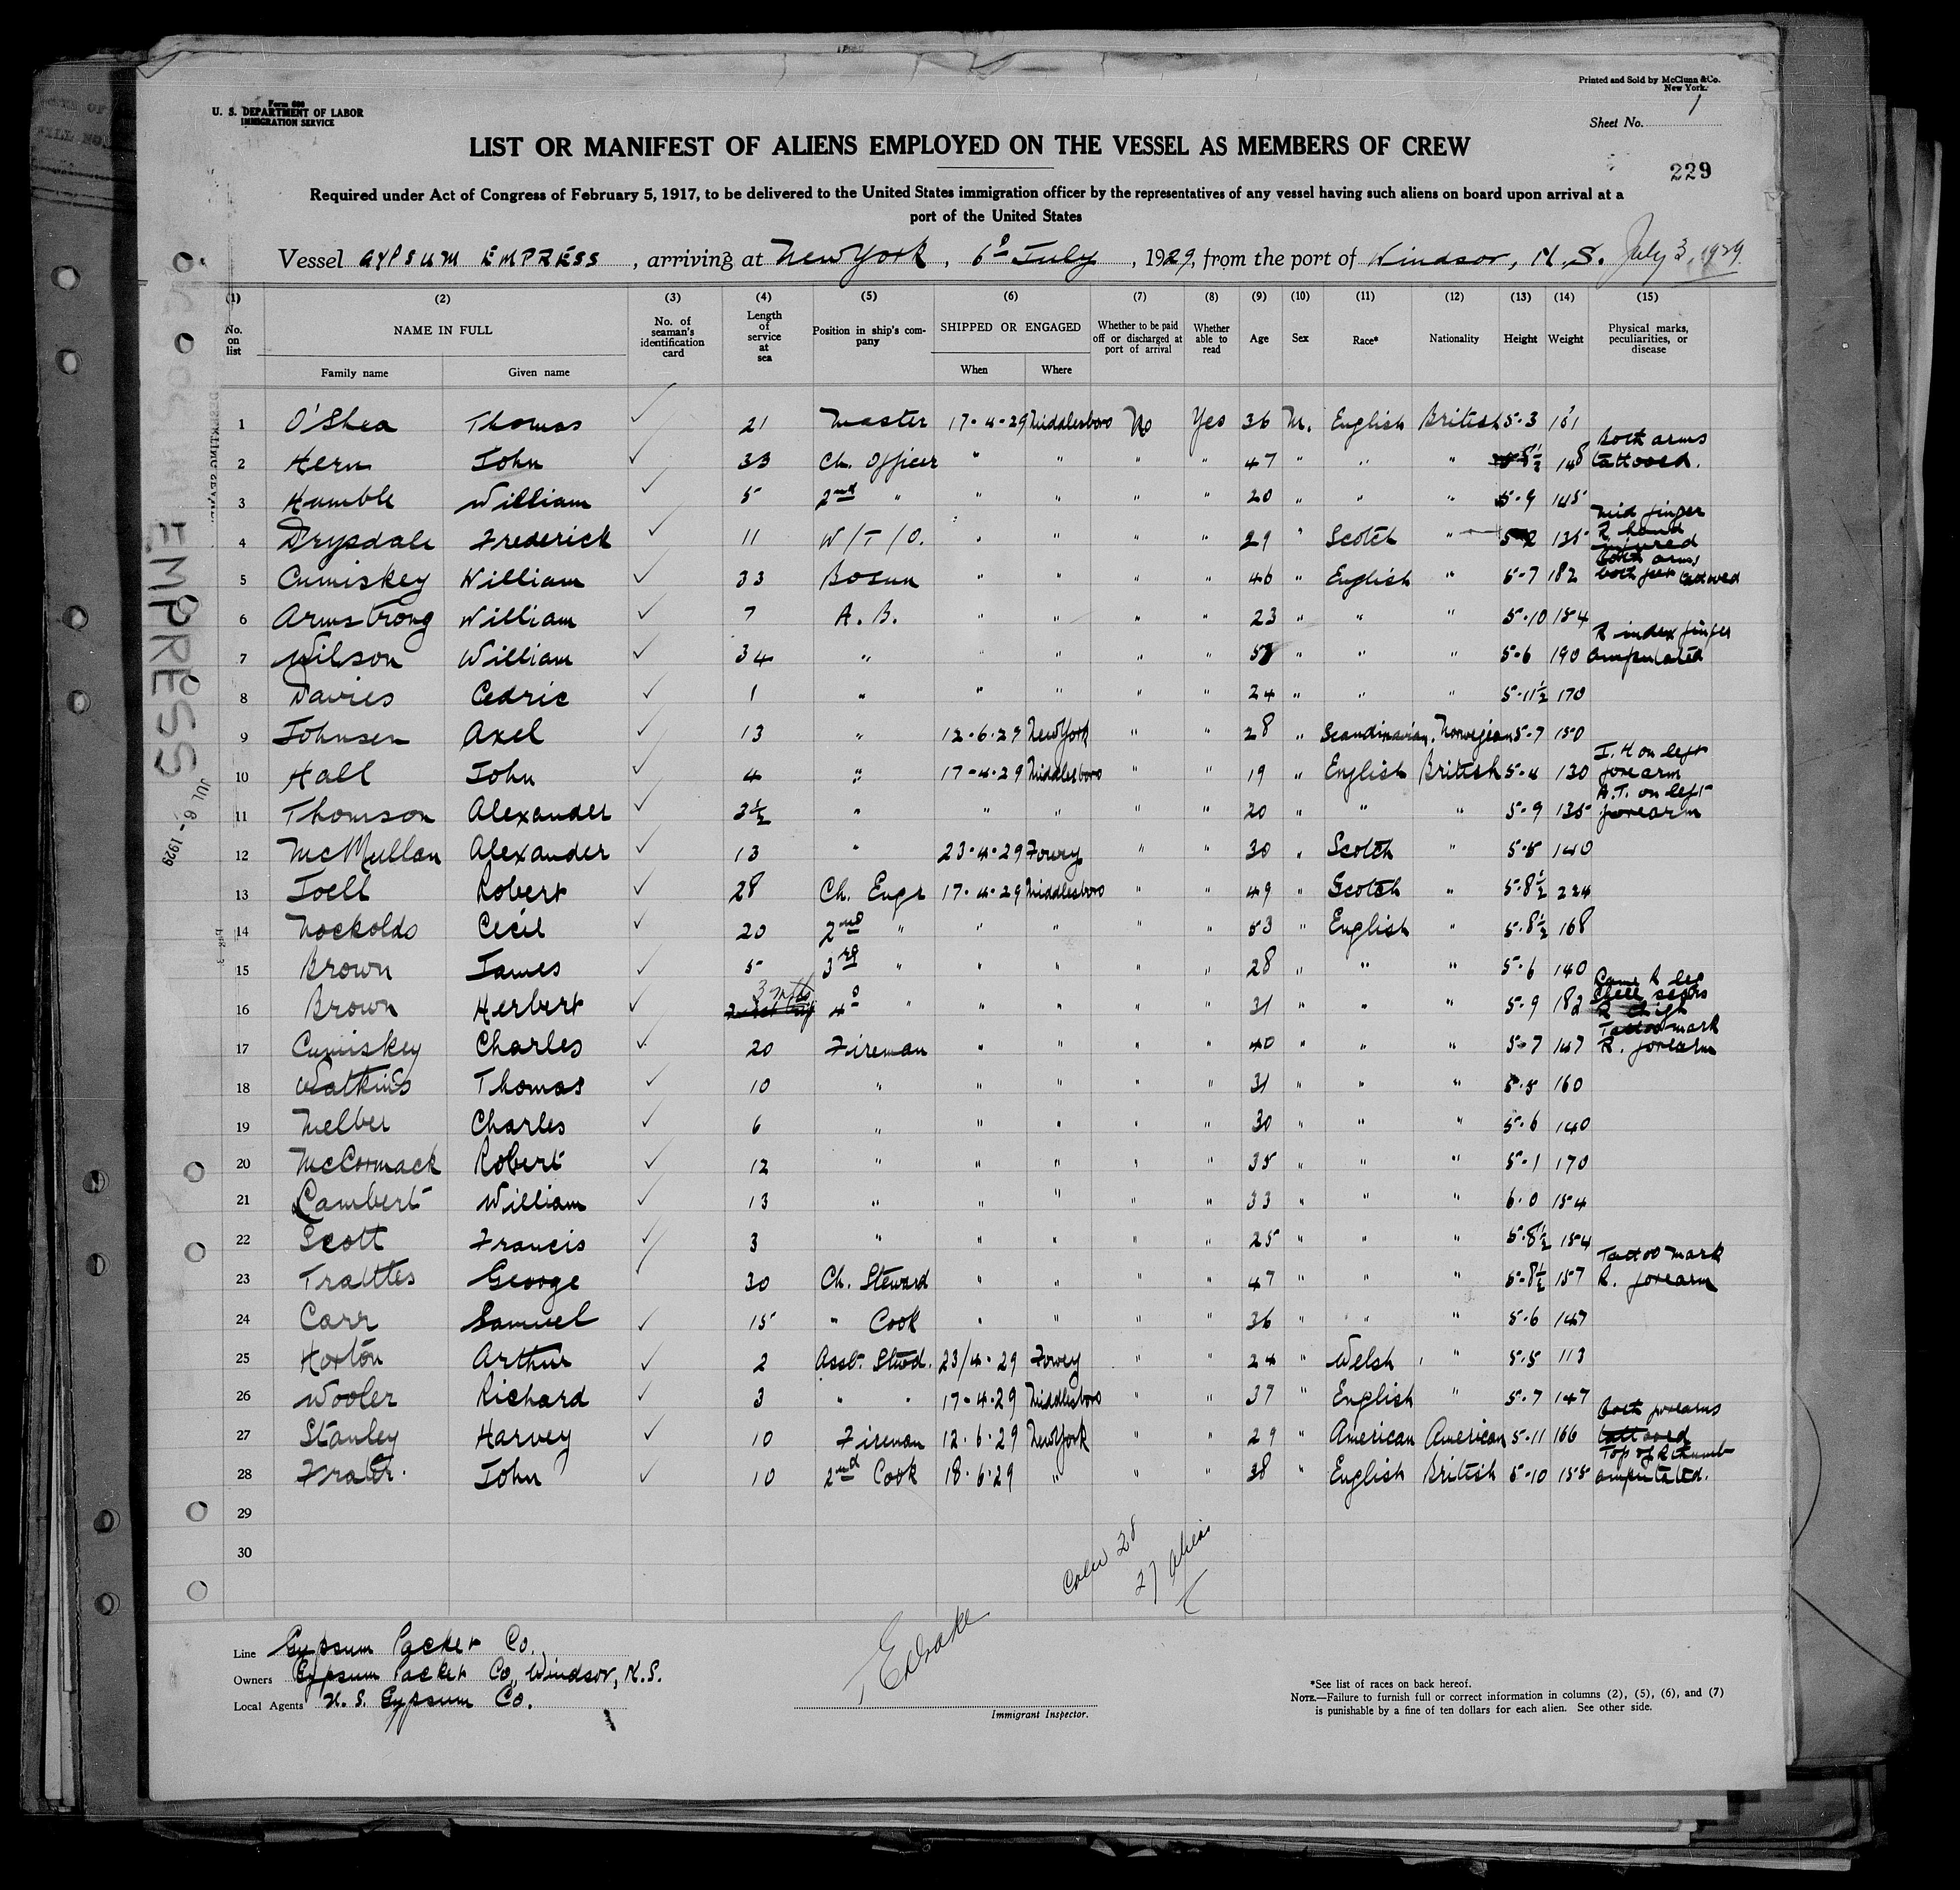 Printed and Sold by McClunn & Co.
New York.
Form 680
U. S. DEPARTMENT OF LABOR
IMMIGRATION SERVICE
Sheet No. 1
LIST OR MANIFEST OF ALIENS EMPLOYED ON THE VESSEL AS MEMBERS OF CREW
229
Required under Act of Congress of February 5, 1917, to be delivered to the United States immigration officer by the representatives of any vessel having such aliens on board upon arrival at a
port of the United States
Vessel GYPSUM EMPRESS, arriving at New York, 6th July, 1929, from the port of Windsor, N.S. July 3, 1929
(1) (2) (3) (4) (5) (6) (7) (8) (9) (10) (11) (12) (13) (14) (15)
No. on list NAME IN FULL Family name Given name No. of seaman's identification card Length of service at sea Position in ship's company SHIPPED OR ENGAGED When Where Whether to be paid off or discharged at port of arrival Whether able to read Age Sex Race* Nationality Height Weight Physical marks, peculiarities, or disease
1 O'Shea Thomas ✓ 21 Master 17-4-29 Middlesboro No Yes 36 M. English British 5-3 151
2 Hern John ✓ 33 Ch. Officer " " " " 47 " " " 8½ 148 Both arms tattooed.
3 Humble William ✓ 5 2nd " " " " " 20 " " " 5-9 145
4 Drysdale Frederick ✓ 11 W/T/O. " " " " 29 " Scotch " 5-2 135 Mid finger R hand injured
5 Cumiskey William ✓ 33 Bosun " " " " 46 " English " 5-7 182 Both arms both feet tattooed
6 Armstrong William ✓ 7 A.B. " " " " 23 " " " 5-10 154
7 Wilson William ✓ 34 " " " " " 53 " " " 5-6 190 R index finger amputated
8 Davies Cedric ✓ 1 " " " " " 24 " " " 5-11½ 170
9 Johnsen Axel ✓ 13 " 12-6-29 New York " " 28 " Scandinavian. Norwegian 5-7 150
10 Hall John ✓ 4 " 17-4-29 Middlesboro " " 19 " English British 5-4 130 J.H on left forearm
11 Thomson Alexander ✓ 3½ " " " " " 20 " " " 5-9 135 A.T. on left forearm
12 McMullan Alexander ✓ 13 " 23-4-29 Fowey " " 30 " Scotch " 5-5 140
13 Joell Robert ✓ 28 Ch. Engr 17-4-29 Middlesboro " " 49 " Scotch " 5-8½ 224
14 Nockolds Cecil ✓ 20 2nd " " " " " 53 " English " 5-8½ 168
15 Brown James ✓ 5 3rd " " " " " 28 " " " 5-6 140
16 Brown Herbert ✓ 3 mths 4th " " " " " 31 " " " 5-9 182 Game R leg Shell scars R thigh
17 Cumiskey Charles ✓ 20 Fireman " " " " 40 " " " 5-7 147 Tattoo mark R. forearm
18 Watkins Thomas ✓ 10 " " " " " 31 " " " 5-5 160
19 Melber Charles ✓ 6 " " " " " 30 " " " 5-6 140
20 McCormack Robert ✓ 12 " " " " " 35 " " " 5-1 170
21 Lambert William ✓ 13 " " " " " 33 " " " 6-0 154
22 Scott Francis ✓ 3 " " " " " 25 " " " 5-8½ 154
23 Trattles George ✓ 30 Ch. Steward " " " " 47 " " " 5-8½ 157 Tattoo mark R. forearm
24 Carr Samuel ✓ 15 " Cook " " " " 36 " " " 5-6 147
25 Horton Arthur ✓ 2 Asst. Stwd. 23/4-29 Fowey " " 24 " Welsh " 5-5 113
26 Wooler Richard ✓ 3 " " 17-4-29 Middlesboro " " 37 " English " 5-7 147
27 Stanley Harvey ✓ 10 Fireman 12-6-29 New York " " 29 " American American 5-11 166 Both forearms tattooed
28 Frater. John ✓ 10 2nd Cook 18-6-29 " " " 38 " English British 5-10 155 Top of R thumb amputated.
29
30
Crew 28
27 aliens
Line Gypsum Packet Co.
Owners Gypsum Packet Co, Windsor, N.S.
Local Agents U.S. Gypsum Co.
Immigrant Inspector.
*See list of races on back hereof.
NOTE.—Failure to furnish full or correct information in columns (2), (5), (6), and (7)
is punishable by a fine of ten dollars for each alien. See other side.
EMPRESS
JUL 6 - 1929